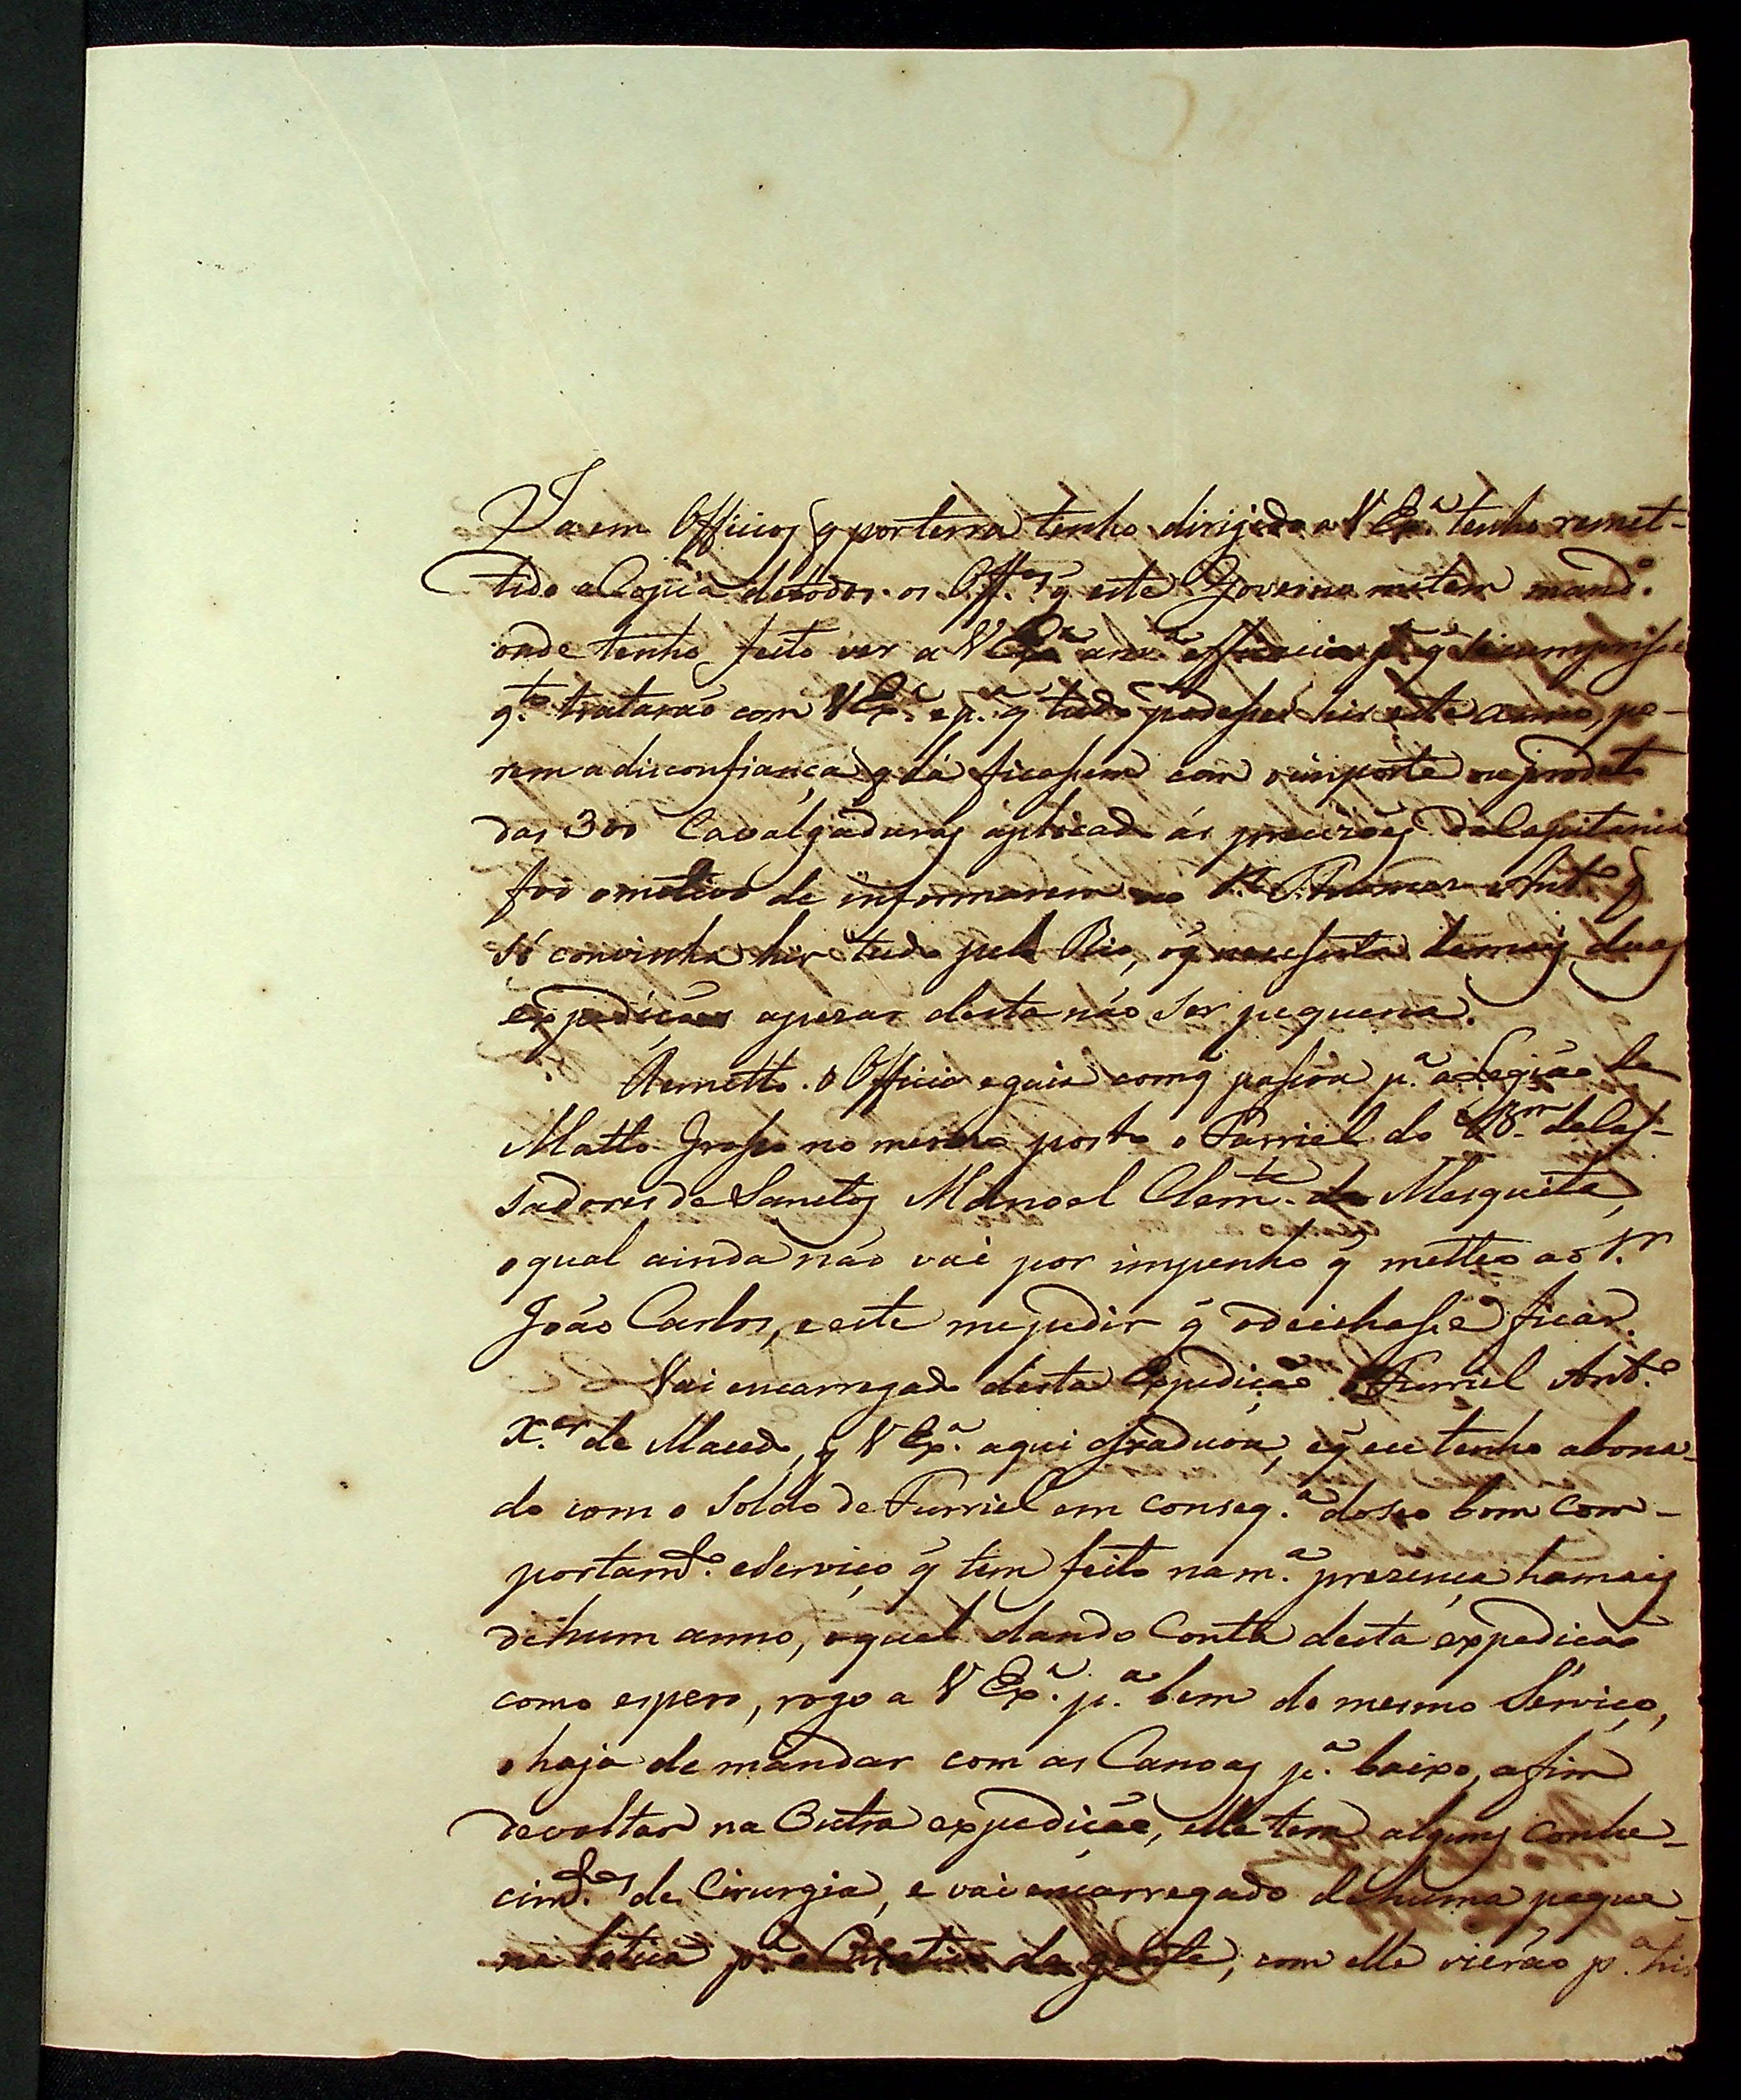 Ja em Officios q̃ por terra tenho dirigido a V Ex.ª tenho remet-
tido a Copia de todos os Off.os q̃ este Governo me tem mand.o
onde tenho feito ver a V Ex.ª a m.ª p.ª q̃ se cumprisse
q.to tratarão com V Ex.ª e p.ª q̃ tudo podesse hir este anno, po-
rem a disconfiança q̃ lá ficassem com o importe ou prodcto
das 300 Cavalgaduras aplicado ás precizoes da Capitania
foi o motivo de informarem ao q̃
só convinha hir tudo pelo Rio, o q̃ necessita de mais duas
expedições apezar desta não ser pequena.
Remetto o Officio e guia com q̃ passou p.ª a Legião de
Matto Grosso no mesmo posto o Furriel do B.m de Cas-
sadores de Sanctos Manoel Clem.te de Mesquita,
o qual ainda não vai por impenho q̃ metteo ao S.r
João Carlos, e este me pedir q̃ o deichasse ficar.
Vai encarregado desta Expedição o Furriel Ant.o
X.er de Macedo, q̃ V Ex.ª aqui graduou, e q̃ eu tenho abona-
do com o Soldo de Furriel em conseq.ª do seo bom Com-
portamd.o e Serviço q̃ tem feito na m.ª prezença ha mais
de hum anno, o qual dando Conta desta expedicão
como espero, rogo a V Ex.ª p.ª bem do mesmo Serviço,
o haja de mandar com as Canoas p.ª baixo, afim
de voltar na Outra expedição, elle tem alguns conhe-
cimd.os de Cirurgia, e vai encarregado de huma peque-
na botica p.ª o Curativo da gente, com elle vierão p.ª hir